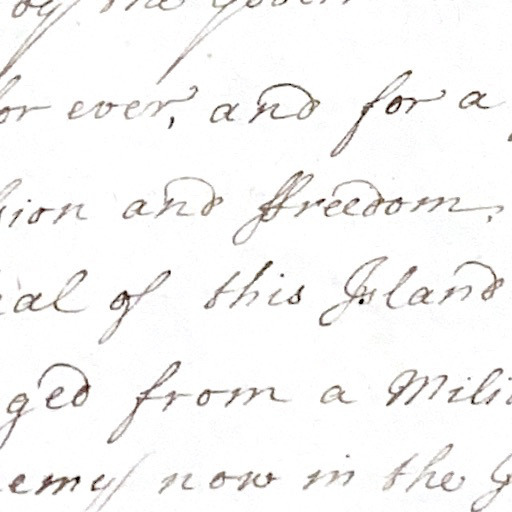 by the Govern
for ever, and for a
sion and ffreedom,
ial of this Island
ged from a Mili
emy now in the